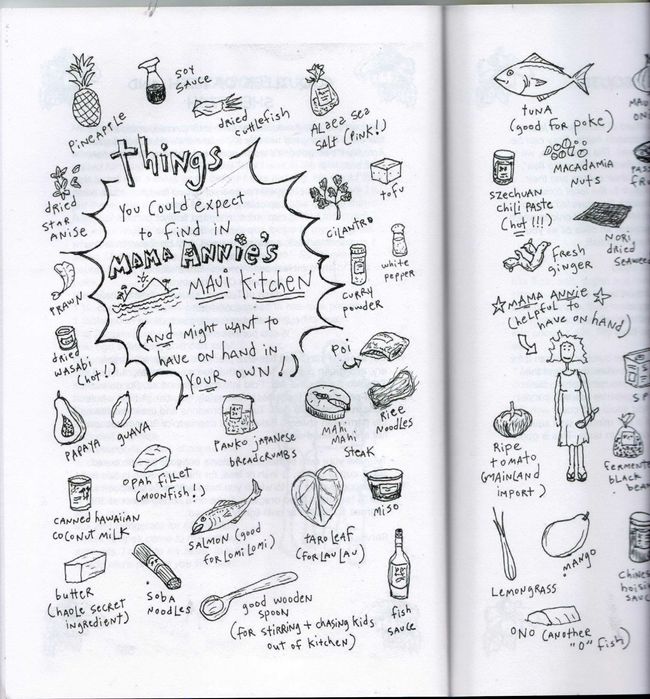 pineapple
soy
sauce
dried
cuttlefish
Alaea sea
salt (pink!)
things
you could expect
to find in
MAMA ANNIE'S
MAUI Kitchen
(AND might want to
have on hand in
YOUR OWN!)
dried
star
anise
tofu
cilantro
white
pepper
curry
powder
prawn
dried
wasabi
(hot!)
poi
papaya
guava
panko japanese
breadcrumbs
mahi
mahi
steak
rice
noodles
opah fillet
(moonfish!)
canned hawaiian
coconut milk
salmon (good
for lomi lomi)
taro leaf
(for lau lau)
miso
butter
(haole secret
ingredient)
soba
noodles
good wooden
spoon
(for stirring + chasing kids
out of kitchen)
fish
sauce
tuna
(good for poke)
macadamia
nuts
szechuan
chili paste
(hot!!!)
nori
dried
seaweed
fresh
ginger
MAMA ANNIE
(helpful to
have on hand)
Ripe
tomato
(mainland
import)
black
lemongrass
mango
ono (another
"o" fish)